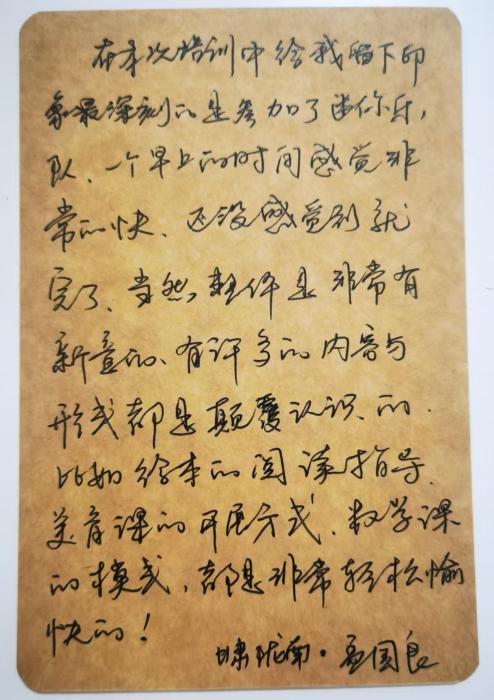 在本次培训中给我留下印
象最深刻的是参加了迷你乐,
队、一个早上的时间感觉非
常的快、还没感觉到就
完了、当然,整体是非常有
新意的、有许多的内容与
形式都是颠覆认识、的.
比如绘本的阅读指导、
美育课的开展方式、数学课
的模式,都是非常轻松愉
快的!
甘肃陇南·孟国良